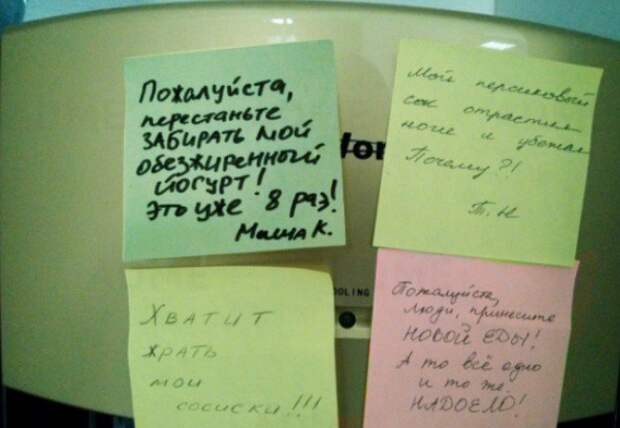 Пожалуйста,
перестаньте
ЗАБИРАТЬ МОЙ
обезжиренный
йогурт!
Это уже 8 раз!
Маша К.
Мой персиковый
сок отрастил
ноги и убежал
Почему?!
Т.Н
Хватит
жрать
мои
сосиски!!!
Пожалуйста,
люди, принесите
НОВОЙ ЕДЫ!
А то всё одно
и то же.
НАДОЕЛО!